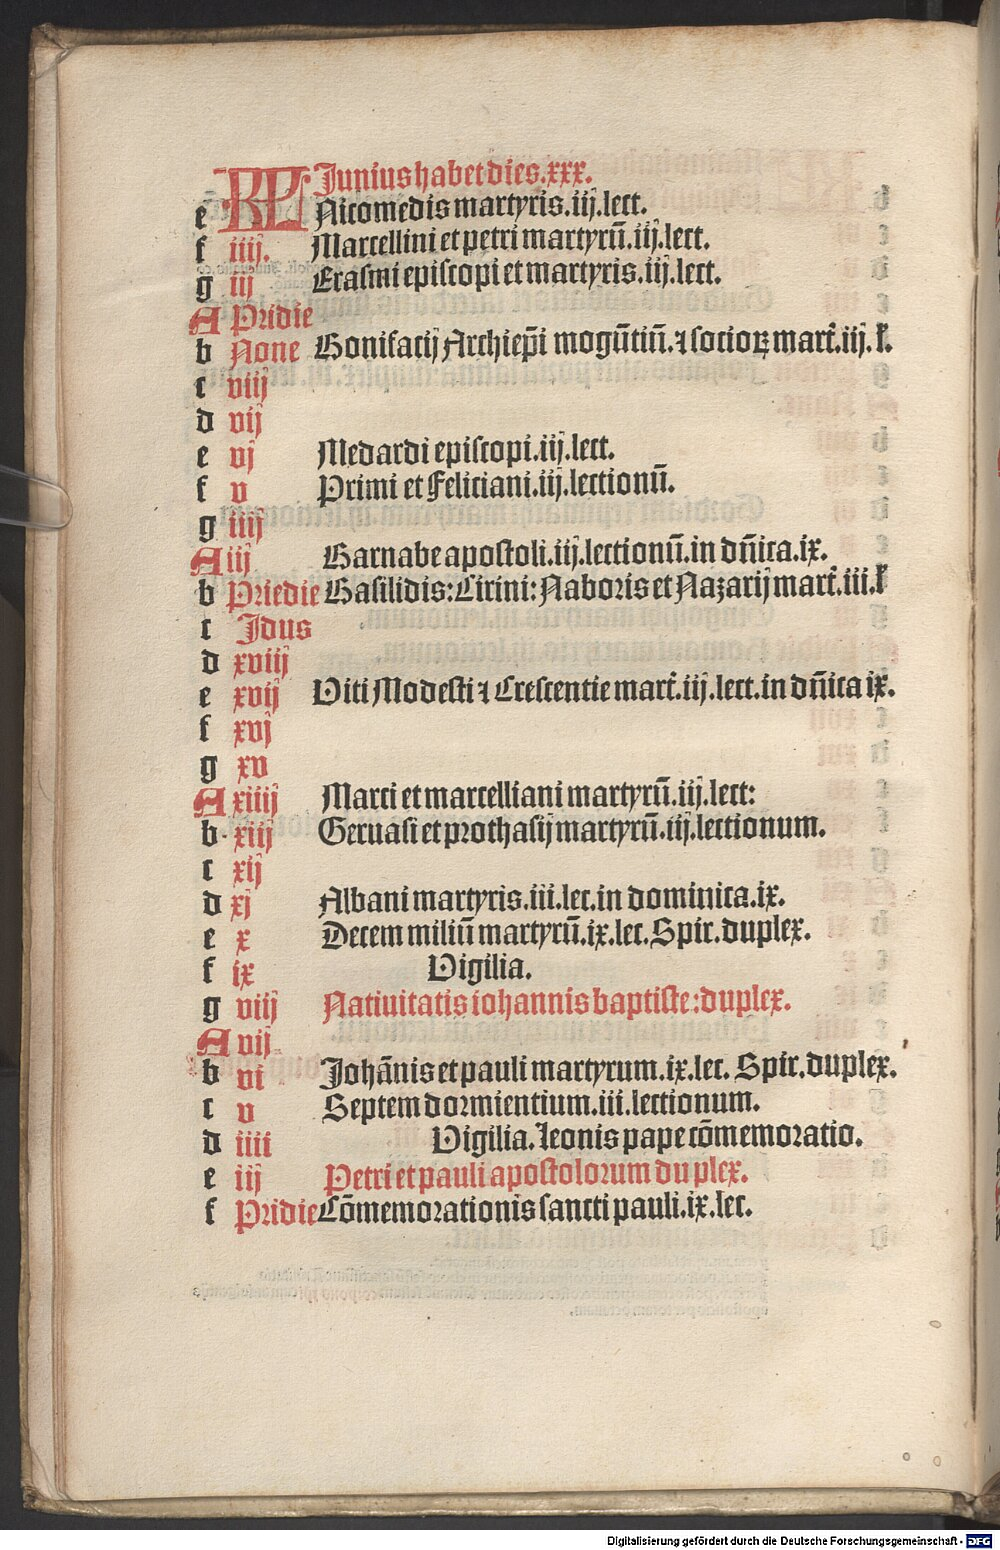 KL Junius habet dies.xxx.
e Nicomedis martyris.iij.lect.
f iiij. Marcellini et petri martyrū.iij.lect.
g iij Erasmi episcopi et martyris.iij.lect.
A Pridie
b None Bonifacij Archiep̄i mogūtiū.⁊ socioꝝ mart̄.iij.l.
c viij
d vij
e vj Medardi episcopi.iij.lect.
f v Primi et Feliciani.iij.lectionū.
g iiij
A iij Barnabe apostoli.iij.lectionū.in dn̄ica.ix.
b Priedie Basilidis:Cirini:Naboris et Nazarij mart̄.iii.l
c Jdus
d xviij
e xvij Viti Modesti ⁊ Crescentie mart̄.iij.lect.in dn̄ica ix.
f xvj
g xv
A xiiij Marci et marcelliani martyrū.iij.lect:
b xiij Geruasi et prothasij martyrū.iij.lectionum.
c xij
d xj Albani martyris.iii.lec.in dominica.ix.
e x Decem miliū martyrū.ix.lec.Spir.duplex.
f ix Vigilia.
g viij Natiuitatis iohannis baptiste:duplex.
A vij
b vi Johānis et pauli martyrum.ix.lec. Spir.duplex.
c v Septem dormientium.iii.lectionum.
d iiii Vigilia.leonis pape cōmemoratio.
e iij Petri et pauli apostolorum duplex.
f Pridie Cōmemorationis sancti pauli.ix.lec.
Digitalisierung gefördert durch die Deutsche Forschungsgemeinschaft - DFG